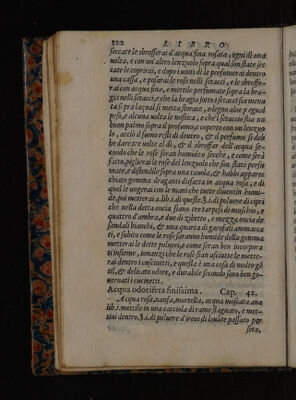 122 LIBRO
seccate le sbrofferai d'acqua fina rosata, ogni dì una
uolta, e con un'altro lenzuolo sopra qual son state sec
cate le coprirai, e dopo i uinti dì le profumerai dentro
una cassa, e posarai le rose nelli setacci, e le sbroffe-
rai con acqua fine, e mettile perfumate sopra la bra-
gia nelli setacci, e che la bragia sotto i setacci sia menu
ta sopra la qual si metta storace, e legno aloe p egual
peso, e alcuna uolta le mesticа, e che'l setaccio stia un
buon palmo sopra il profumo, e coperto con un lenzuo
lo, acciò il fumo resti di dentro, & il perfumo si deb
be dare tre uolte al dì, & il sbroffar dell'acqua se-
condo che le rose seran humide o secche, e come serà
fatto, pigliarai le rose del lenzuolo che son state perfu
mate, e distendile sopra una tavola, & habbi apparec
chiato gomma draganti disfatta in acqua rosa, e di
quel le ungerai con le mani che tutte diuentin humi-
de, poi metterai a.libi di queste.3.i.di poluere di cipri
che nella detta oncia siano tre tarpesi di muschio, e
quattro d'ambra, e due di zibetto, e mezza oncia de
sandali bianchi, & una quarta di garofali ammacca
ti, e subito come le rose saranno humide della gomma
metterai le dette polueri, e come seran ben incorpora
ti insieme, innanzi che le rose sian asciutte le mette-
rai dentro i cuscinetti, e questa è una cosa di molto gē
til, & delicato odore, e durabile secondo sono ben go-
uernati i cuscinetti.
Acqua odorifera finissima. Cap. 42.
Acqua rosa, nanfa, mortella, acqua moscata ana
lib.i. mettile in una cacciola di rame stagnato, e met-
tiui dentro.3.i.di poluere d'ireos di leuāte passato per
seta,